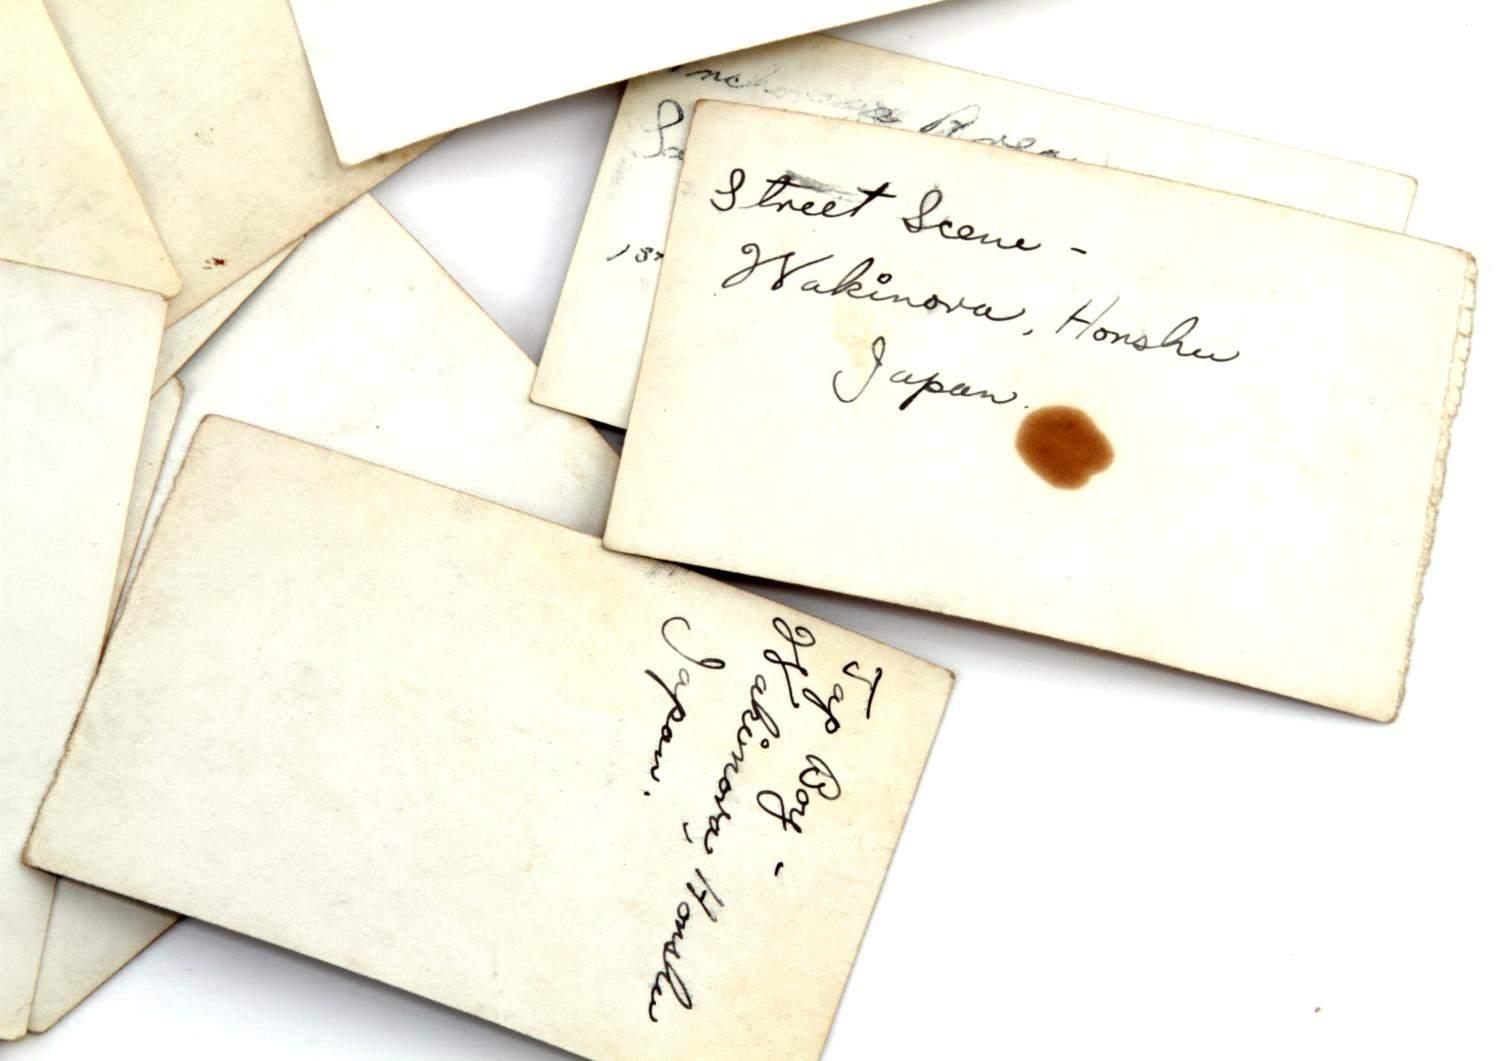 Korea
Street Scene -
Wakinova, Honshu
Japan.
Jap Boy -
Wakinova, Honshu
Japan.